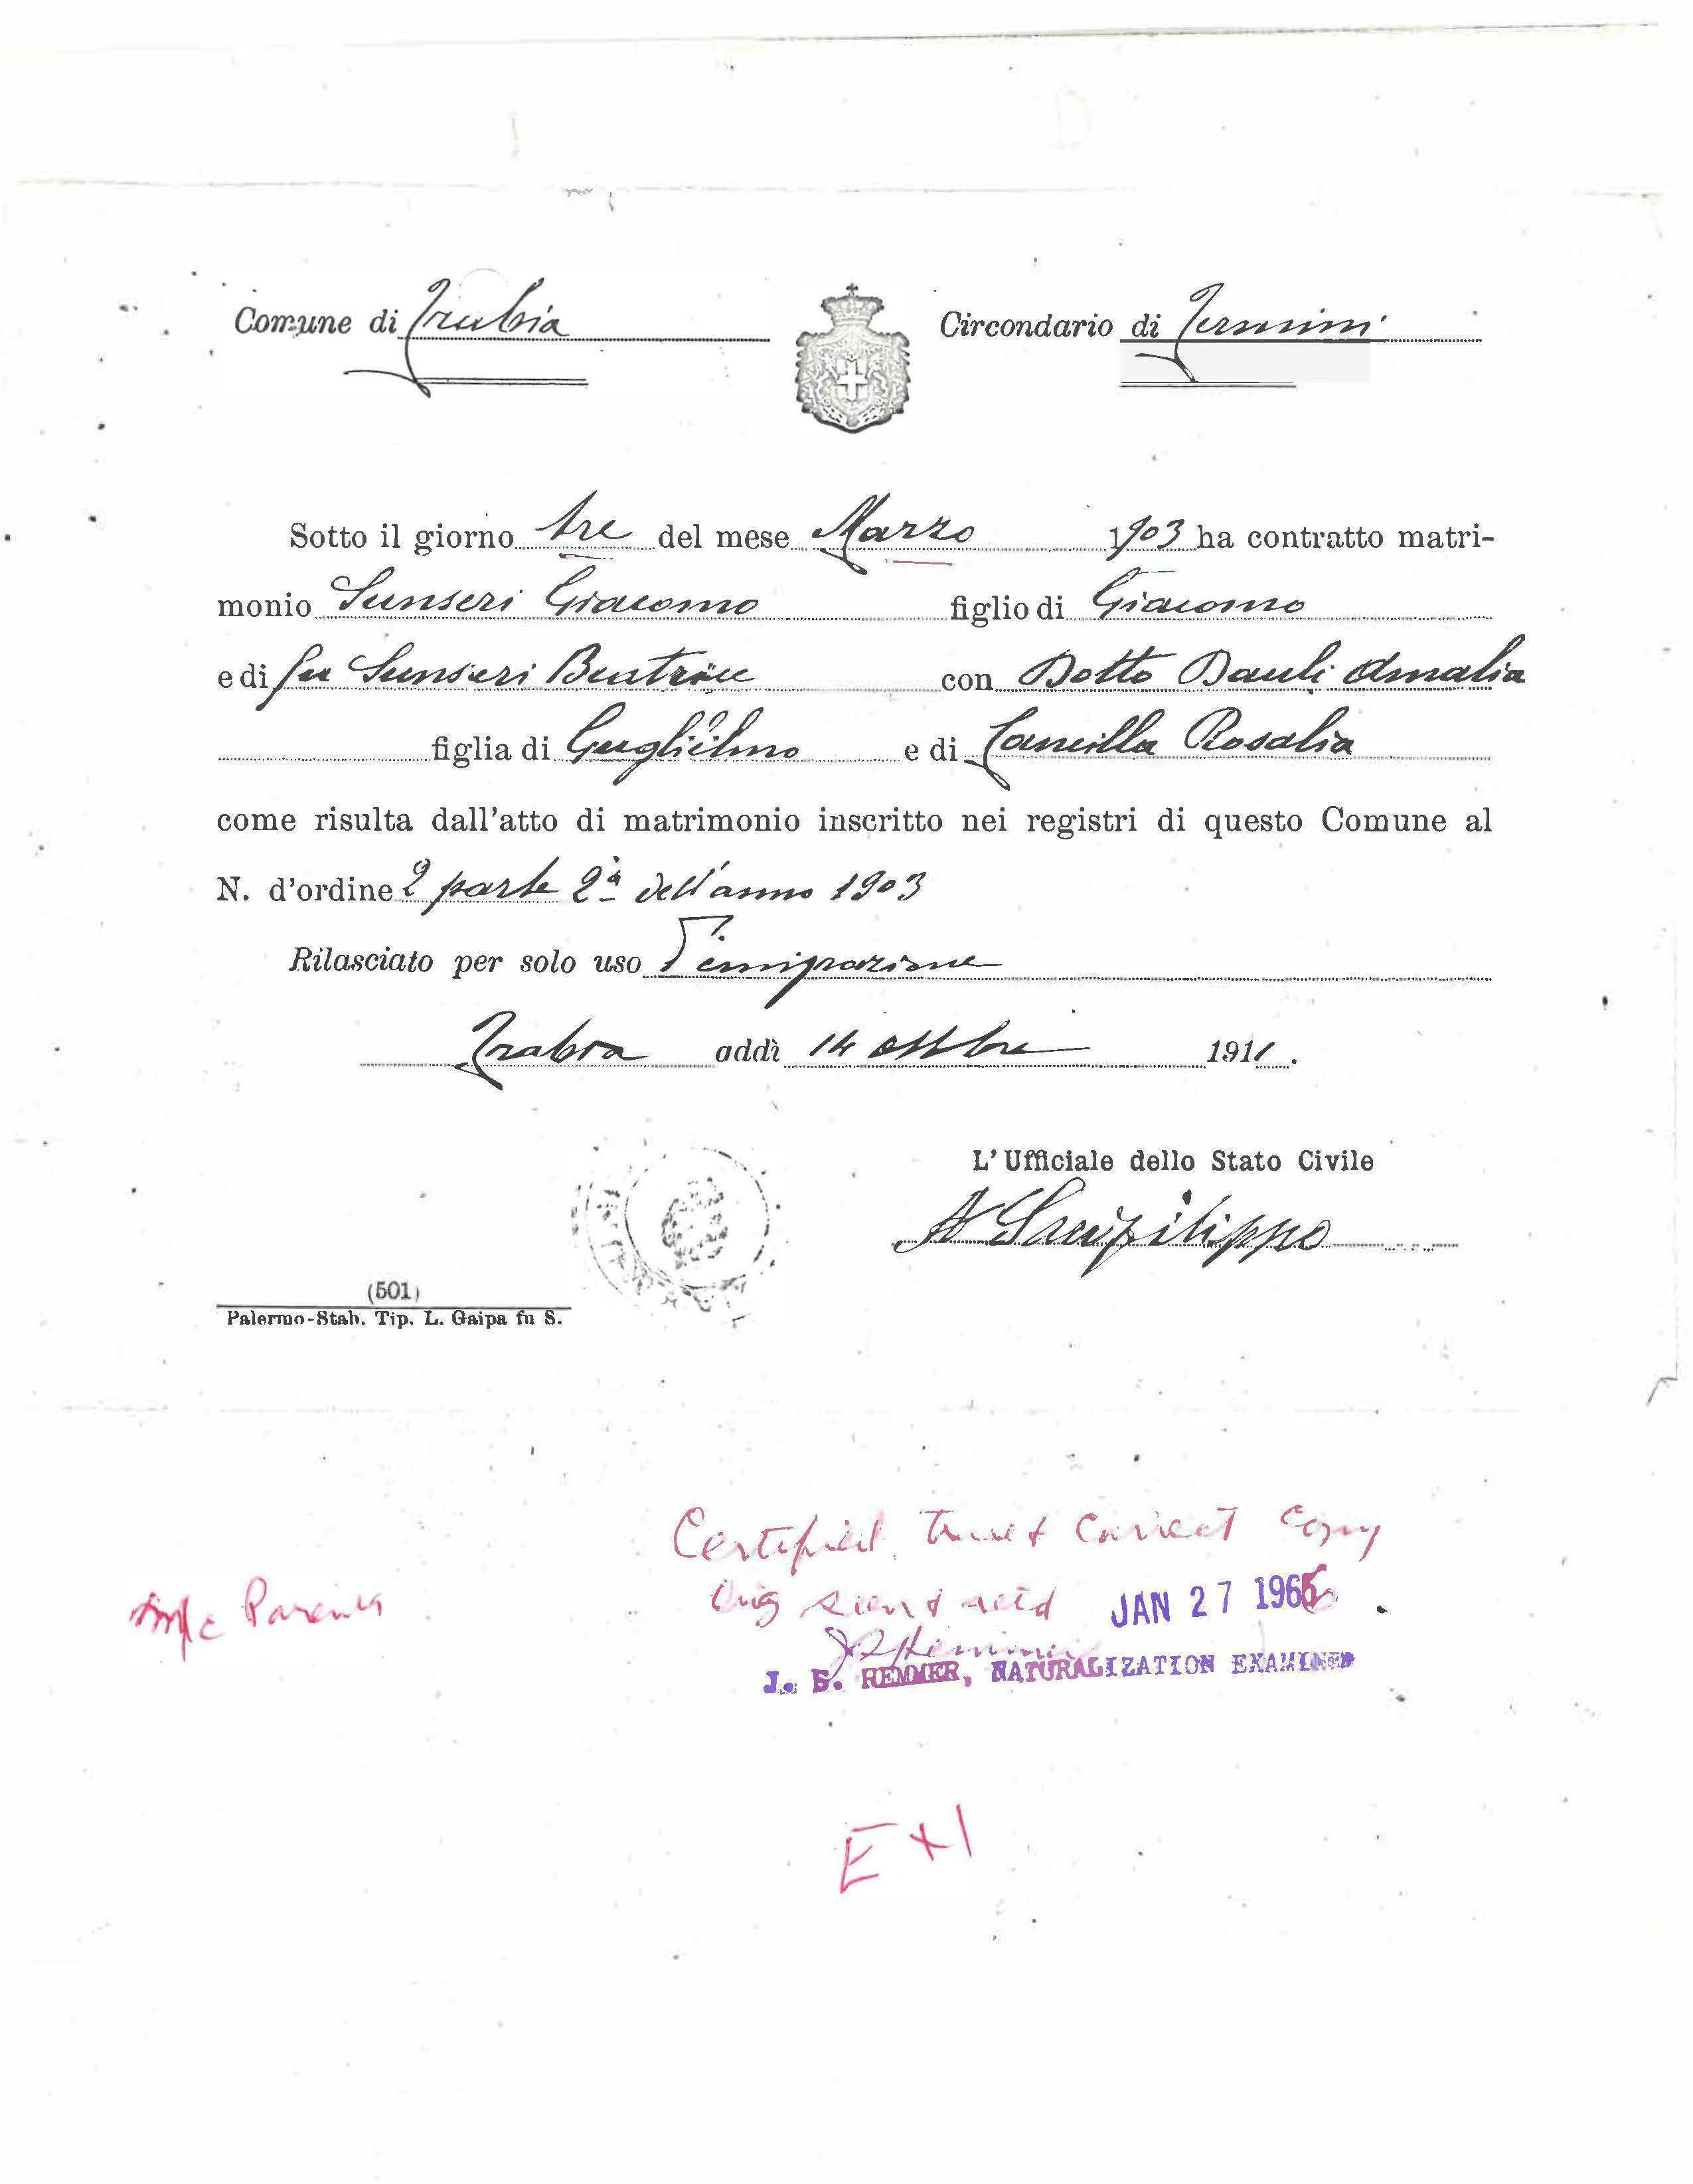 Comune di Trabia
Circondario di Termini
Sotto il giorno tre del mese Marzo 1903 ha contratto matri-
monio Sunseri Giacomo figlio di Giacomo
e di fu Sunseri Beatrice con Dotto Dauli Amalia
figlia di Guglielmo e di Cancilla Rosalia
come risulta dall'atto di matrimonio inscritto nei registri di questo Comune al
N. d'ordine 2 parte 2ª dell'anno 1903
Rilasciato per solo uso d'emigrazione
Trabia addì 14 ottobre 1911.
L'Ufficiale dello Stato Civile
A Sanfilippo
(501)
Palermo-Stab. Tip. L. Gaipa fu S.
Certified true & correct copy
orig & retd JAN 27 1966
M/c Parents
J. E. REMMER, NATURALIZATION EXAMINER
Ex 1